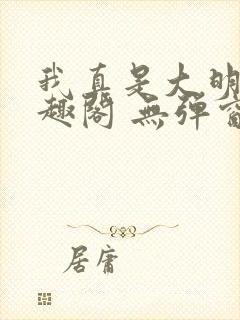 我真是大明
趣阁 無弹窗
居庸